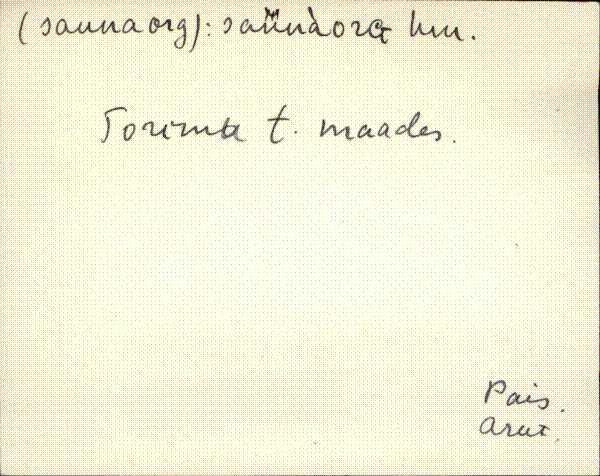 (saunaorg): saùnàorG hrn.
Torima t. maades.
Pais.
Arut.